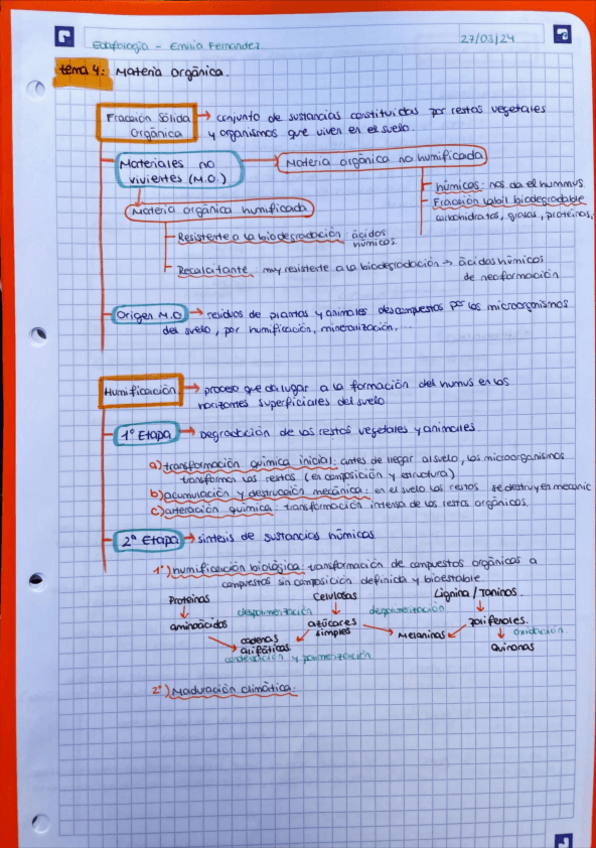 Edafología - Emilia Fernandez.
27/03/24
tema 4: Materia orgánica.
Fracción Sólida
Orgánica
→ conjunto de sustancias constituidas por restos vegetales
y organismos que viven en el suelo.
Materiales no
vivientes (M.O.)
→ Materia orgánica no humificada
húmicos: nos da el hummus
Fracción lábil biodegradable
carbohidratos, grasas, proteínas,
Materia orgánica humificada
Resistente a la biodegradación ácidos
húmicos.
Recalcitante muy resistente a la biodegradación → ácidos húmicos
de neoformación
Origen M.O → residios de plantas y animales descompuestos por los microorganismos
del svelo, por humificación, mineralización, ...
Humificación → proceso que da lugar a la formación del humus en los
horizontes superficiales del suelo
1º Etapa → Degradación de los restos vegetales y animales.
a) transformación química inicial: antes de llegar al suelo, los microorganismos
transforman los restos (en composición y estructura)
b) acumulación y destrucción mecánica: en el suelo los restos se destruyen mecanic
c) alteración química: transformación intensa de los restos orgánicos.
2ª Etapa → síntesis de sustancias húmicas
1º) humificación biológica: transformación de compuestos orgánicos a
compuestos sin composición definida y bioestable
Proteínas Celulosas Lignina / Taninos.
despolimerización despolimerización
aminoácidos azúcares
simples
polifenoles.
cadenas
alifáticas
Melaninas
oxidación.
condensación y polimerización
Quinonas
2º) Maduración climática: